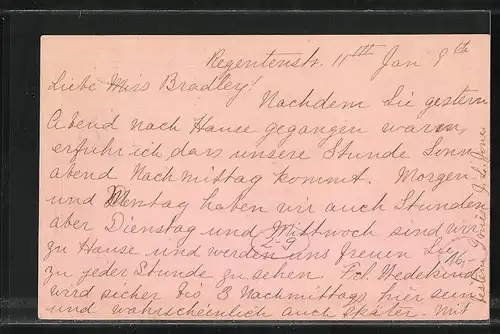 Regentenstr. 11th Jan 9th
Liebe Miss Bradley!
Nachdem Sie gestern
Abend nach Hause gegangen waren,
erfuhr ich dass unsere Stunde Sonn-
abend Nachmittag kommt. Morgen
und Montag haben wir auch Stunden
aber Dienstag und Mittwoch sind wir
zu Hause und werden uns freuen Sie
2-9
zu jeder Stunde zu sehen. Frl. Wedekind
wird sicher bis 3 Nachmittags hier sein
und wahrscheinlich auch später. Mit